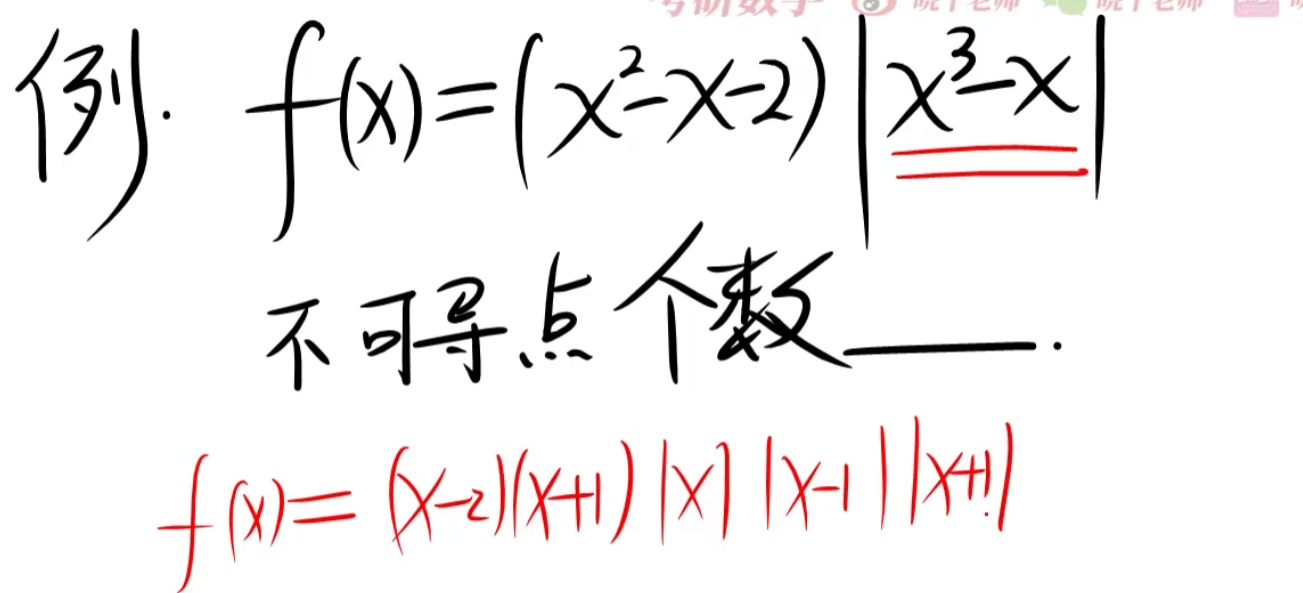 考研数学 晓千老师 晓千老师
例. f(x)=(x²-x-2)|x³-x|
不可导点个数____.
f(x)=(x-2)(x+1)|x||x-1||x+1|